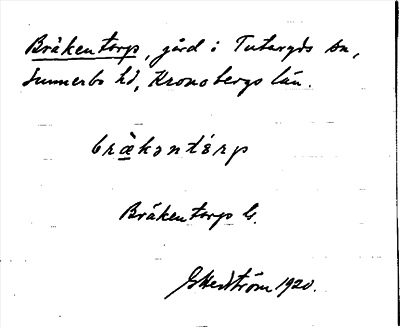 Bråkentorp, gård i Tutaryds sn,
Sunnerbo hd, Kronobergs län.
bræ̀kəntórp
Bråkentorp G.
1920.